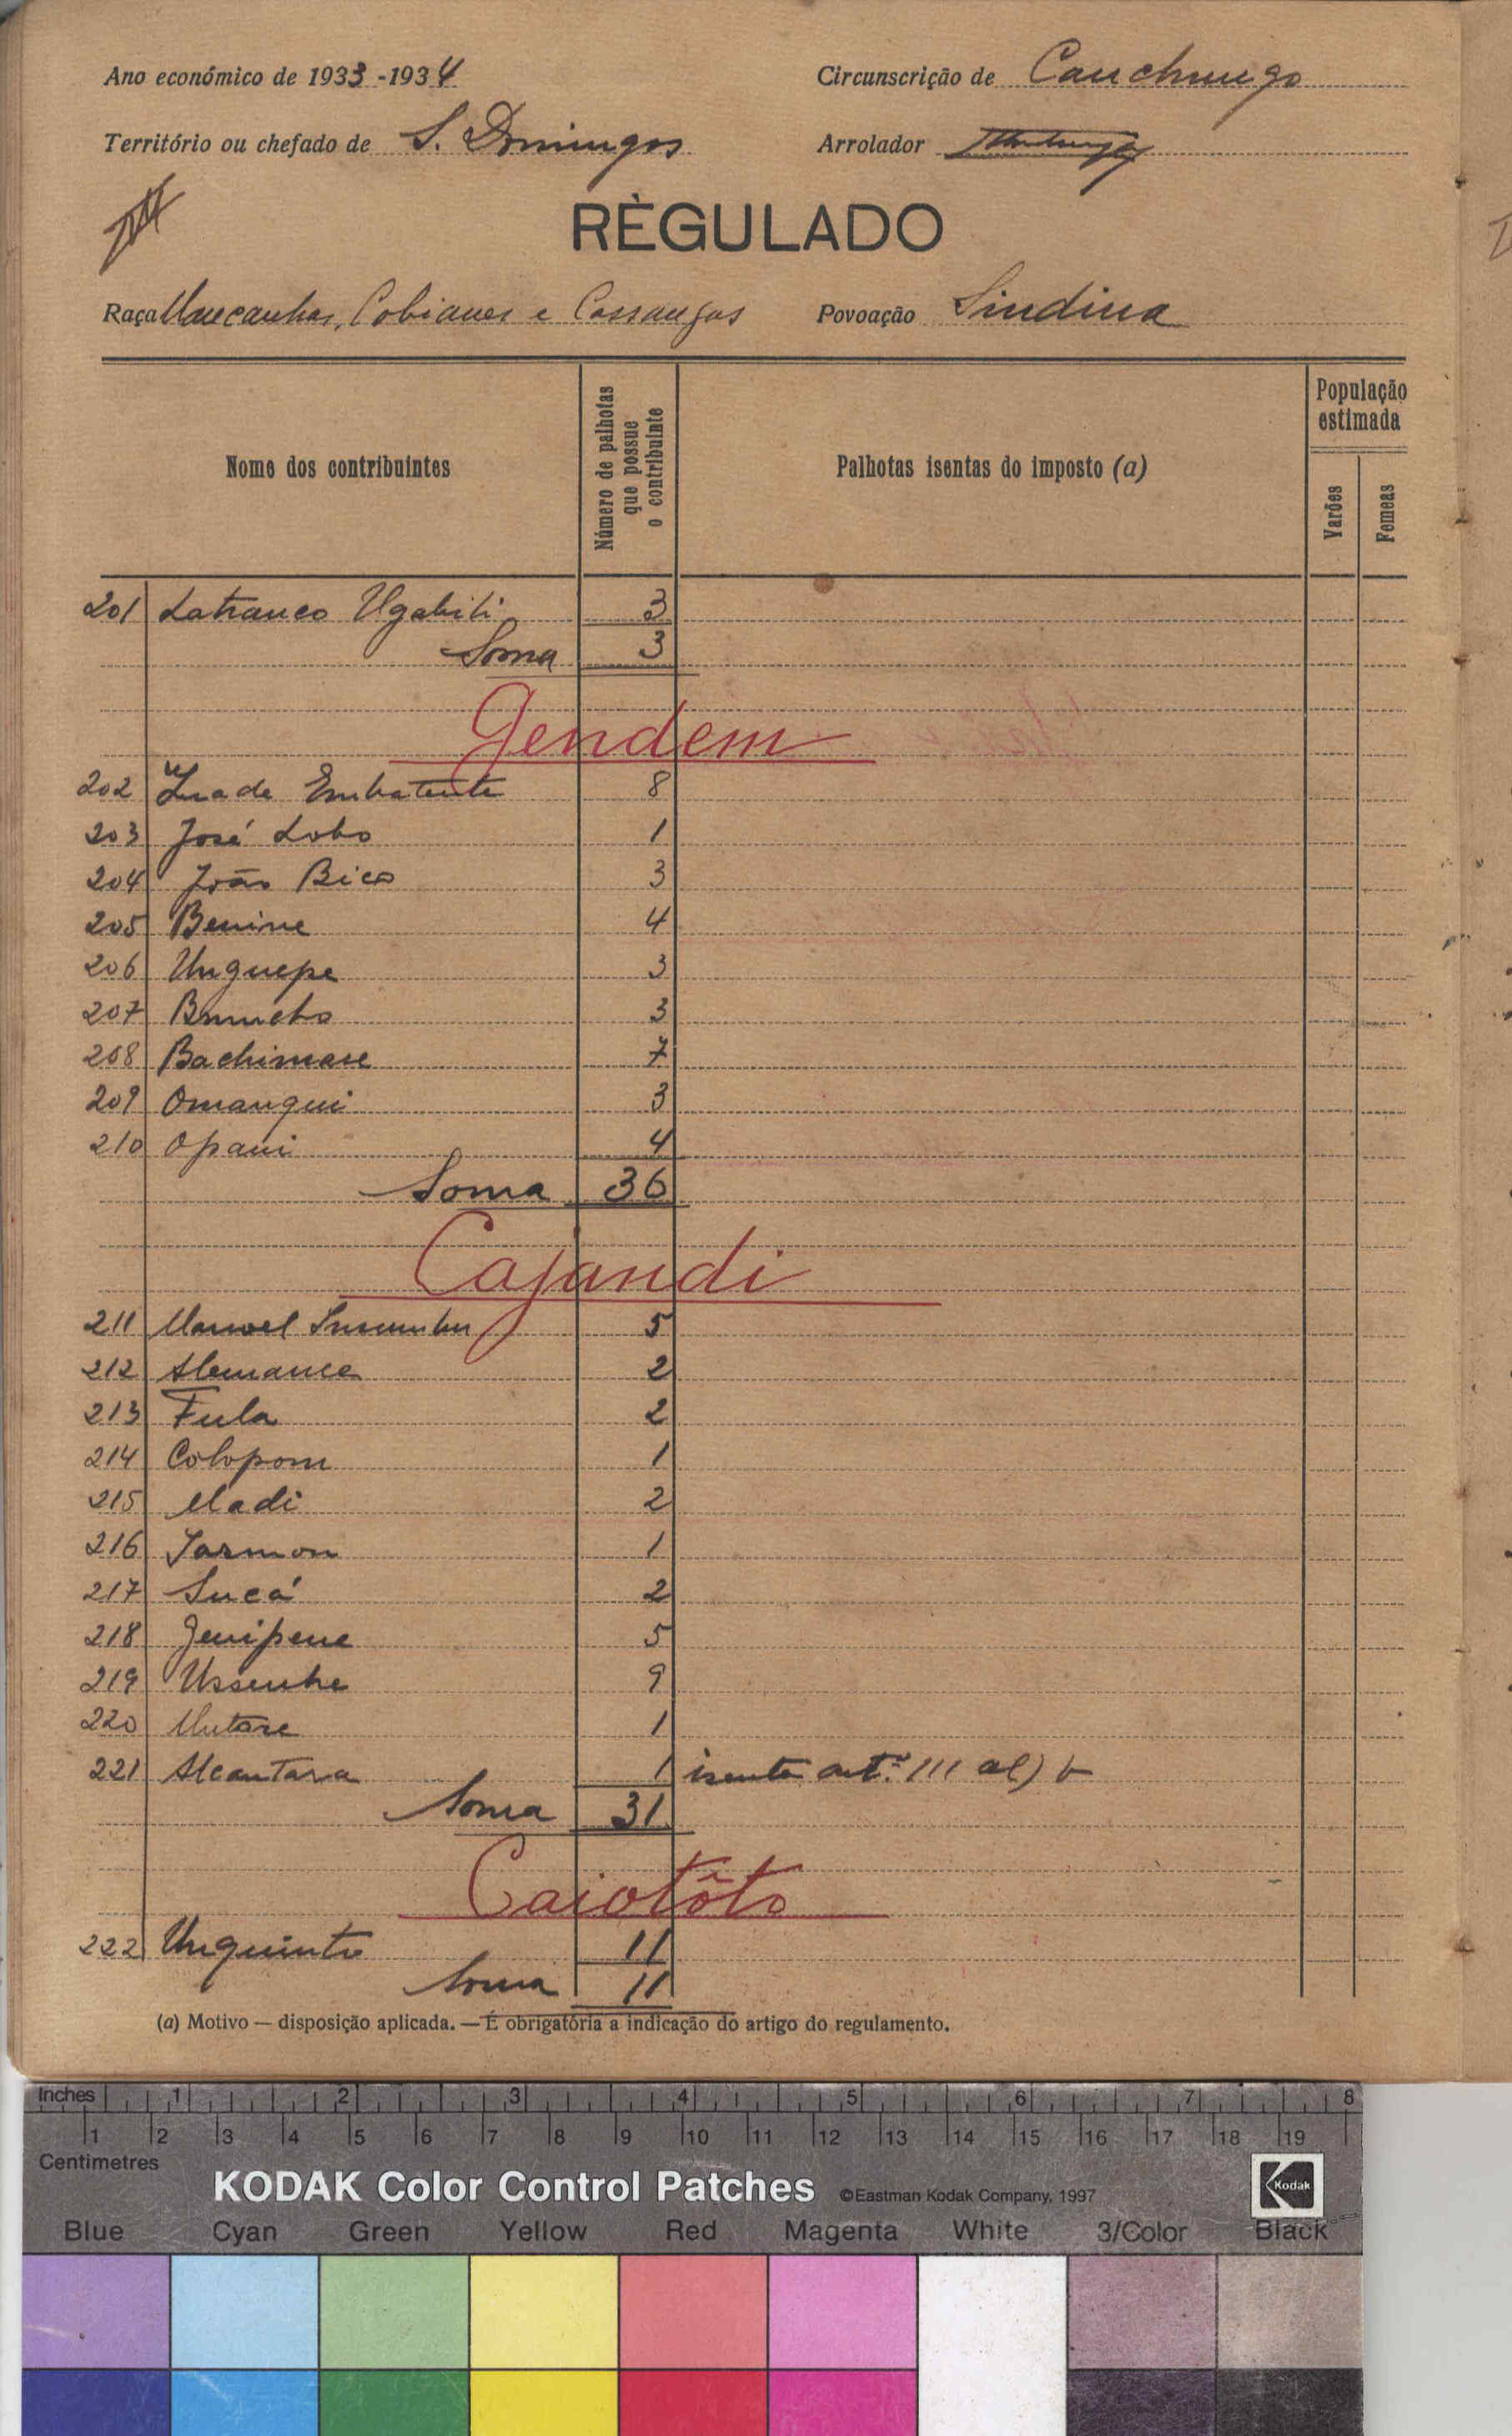 Ano económico de 1933-1934 Circunscrição de Canchungo
Território ou chefado de S. Domingos Arrolador
RÈGULADO
Raça Mancanhas, Cobianes e Cassangas Povoação Sindina
Nome dos contribuintes
Número de palhotas que possue o contribuinte
Palhotas isentas do imposto (a)
População estimada
Varões
Femeas
201 Latranco Ugabiti 3
Soma 3
Gendem
202 Embatente 8
203 José Lobo 1
204 João Bico 3
205 Benine 4
206 Unguepe 3
207 3
208 Bachimase 7
209 Omangui 3
210 Opani 4
Soma 36
Cajandi
211 Manoel 5
212 2
213 Fula 2
214 Colopom 1
215 Madi 2
216 Jarmon 1
217 Sucá 2
218 Genipene 5
219 Ussenhe 9
220 Mutare 1
221 Alcantara 1 isento artº 111 al) b
Soma 31
Caiotôto
222 Unquinto 11
Soma 11
(a) Motivo — disposição aplicada. — É obrigatória a indicação do artigo do regulamento.
Inches 1 2 3 4 5 6 7 8
1 2 3 4 5 6 7 8 9 10 11 12 13 14 15 16 17 18 19
Centimetres
KODAK Color Control Patches ©Eastman Kodak Company, 1997 Kodak
Blue Cyan Green Yellow Red Magenta White 3/Color Black